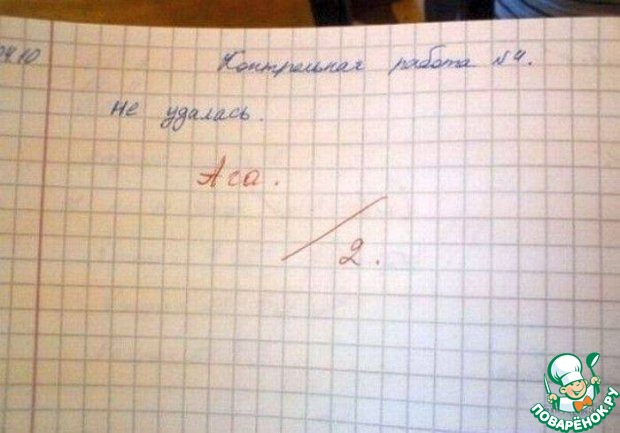 04.10
Контрольная работа №4.
Не удалась.
Ага.
2.
ПОВАРЁНОК.РУ